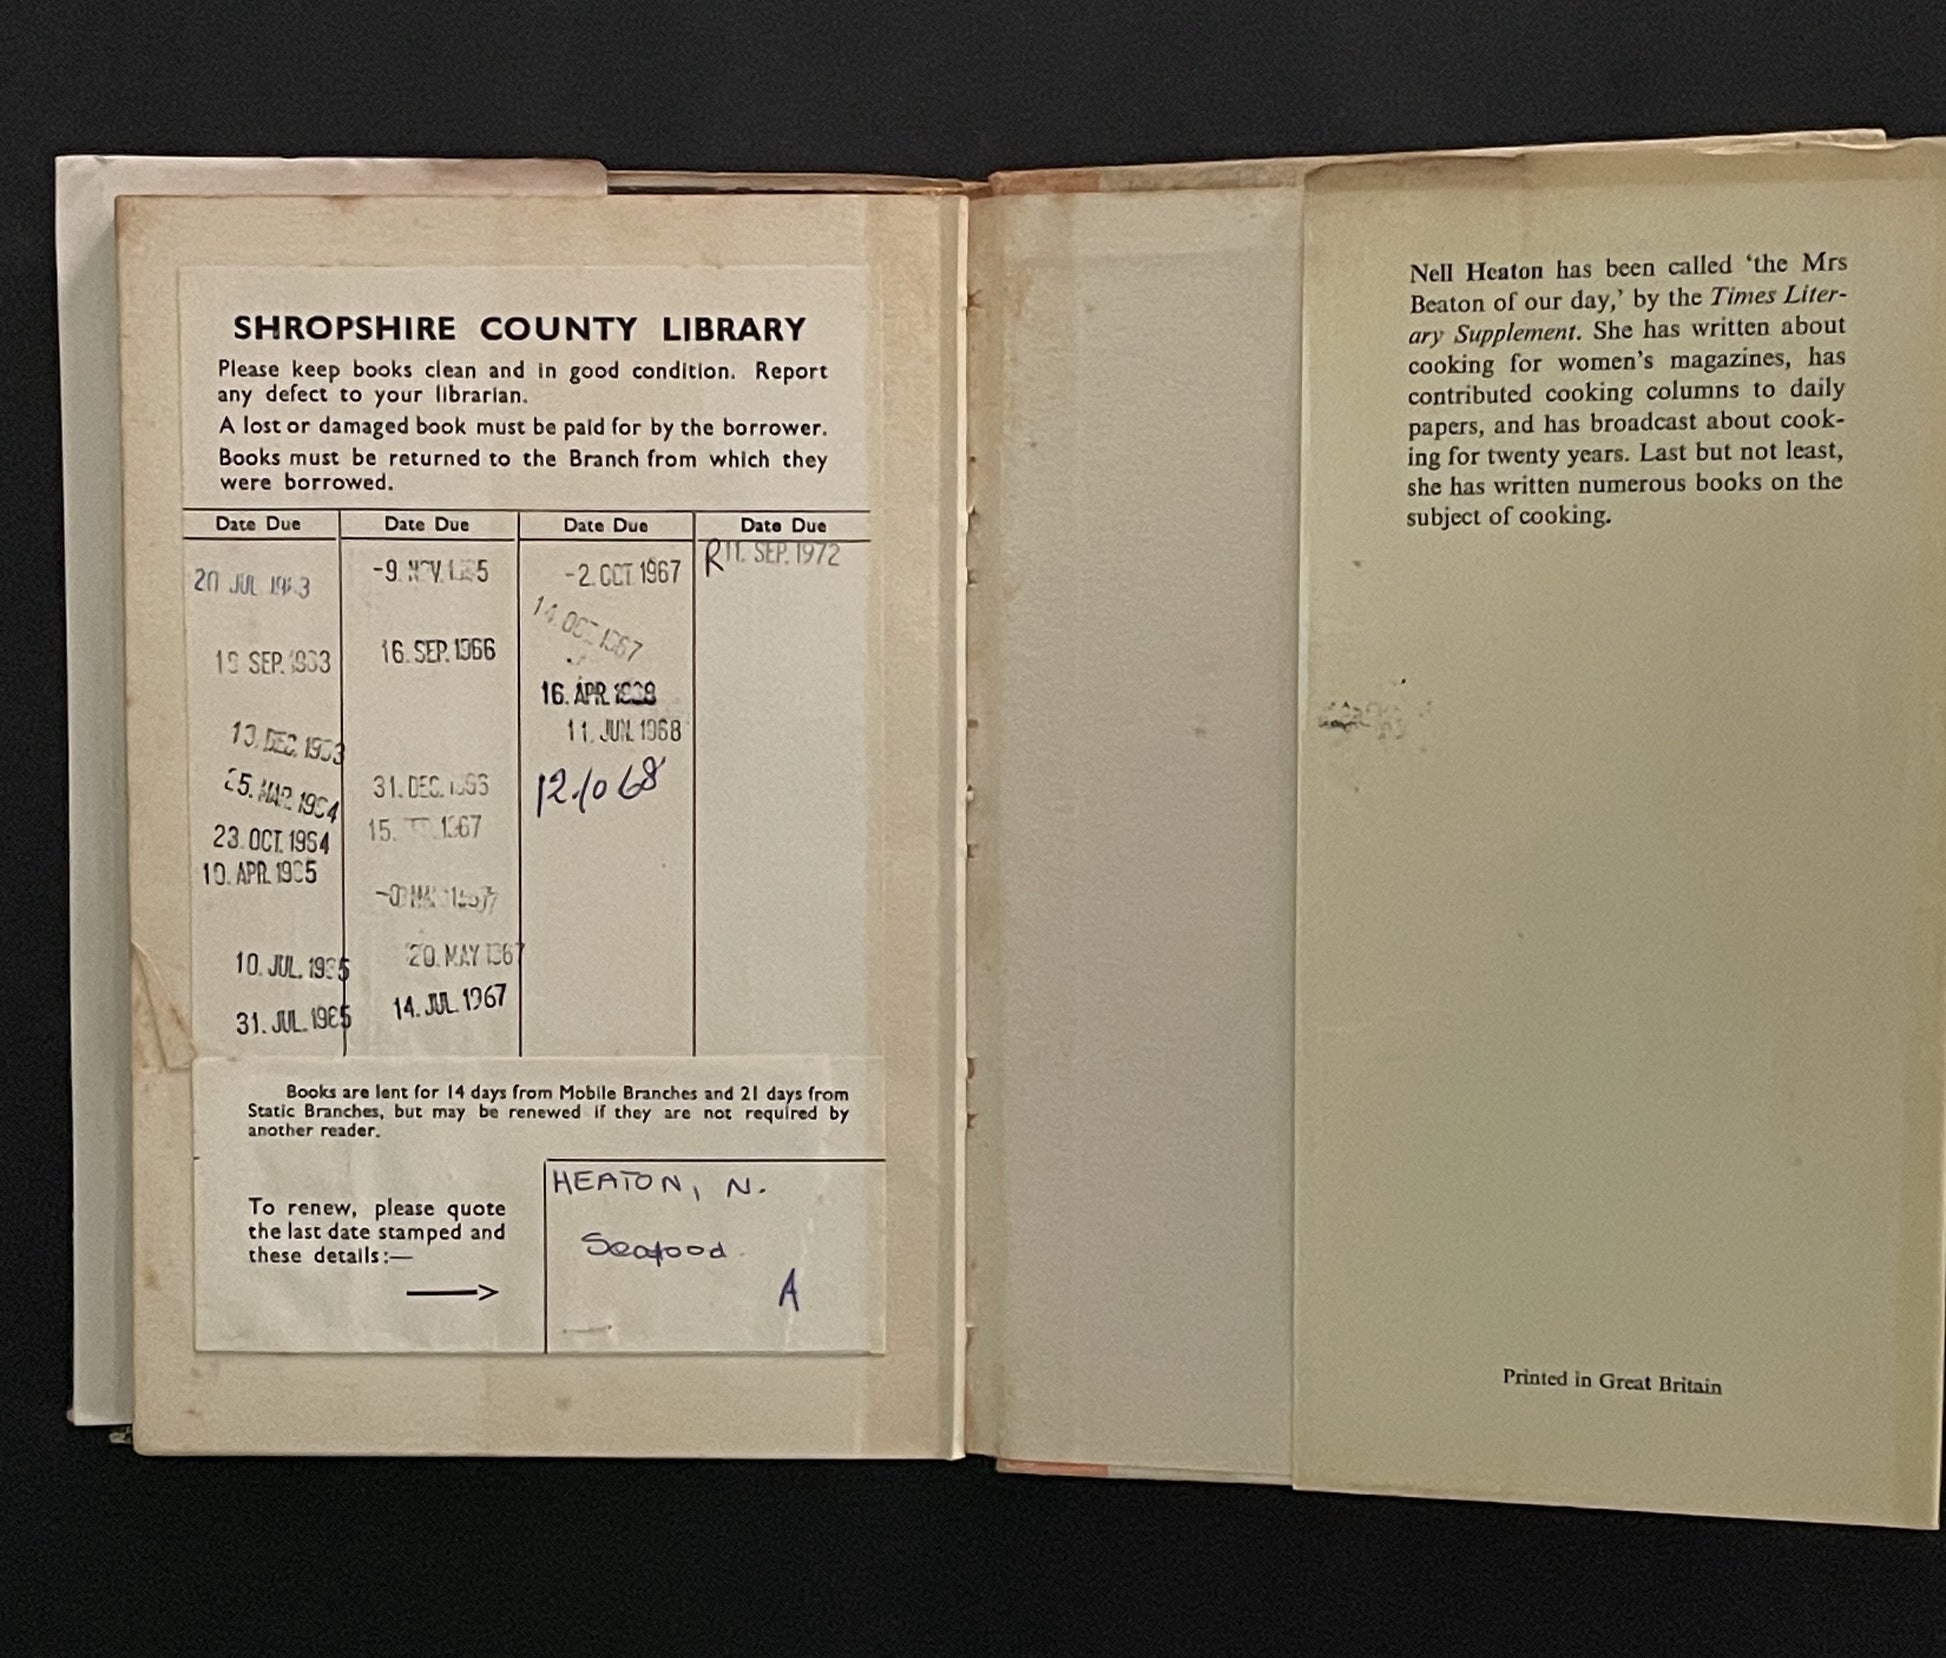 SHROPSHIRE COUNTY LIBRARY
Please keep books clean and in good condition. Report
any defect to your librarian.
A lost or damaged book must be paid for by the borrower.
Books must be returned to the Branch from which they
were borrowed.
Date Due Date Due Date Due Date Due
20 JUL
SEP. 1963
DEC. 1963
25. MAR. 1964
23. OCT. 1964
10. APR. 1965
10. JUL. 1965
31. JUL. 1965
-9. NOV. 1965
16. SEP. 1966
31. DEC. 1966
15. 1967
1967
20. MAY 1967
14. JUL. 1967
-2. OCT. 1967
14. OCT. 1967
16. APR.
11. JUN. 1968
12.10 68
R 11. SEP. 1972
Books are lent for 14 days from Mobile Branches and 21 days from
Static Branches, but may be renewed if they are not required by
another reader.
To renew, please quote
the last date stamped and
these details:—
HEATON, N.
Seafood
A
Nell Heaton has been called ‘the Mrs
Beaton of our day,’ by the Times Liter-
ary Supplement. She has written about
cooking for women’s magazines, has
contributed cooking columns to daily
papers, and has broadcast about cook-
ing for twenty years. Last but not least,
she has written numerous books on the
subject of cooking.
Printed in Great Britain